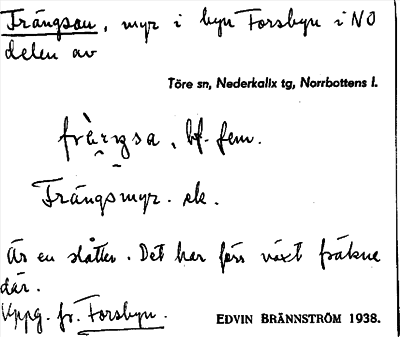 Frängsan, myr i byn Forsbyn i NO
delen av
Töre sn, Nederkalix tg, Norrbottens l.
frängsa, bf. fem.
Frängsmyr. ek.
Är en slåtter. Det har förr växt fräkne
där.
Uppg. fr. Forsbyn.
EDVIN BRÄNNSTRÖM 1938.